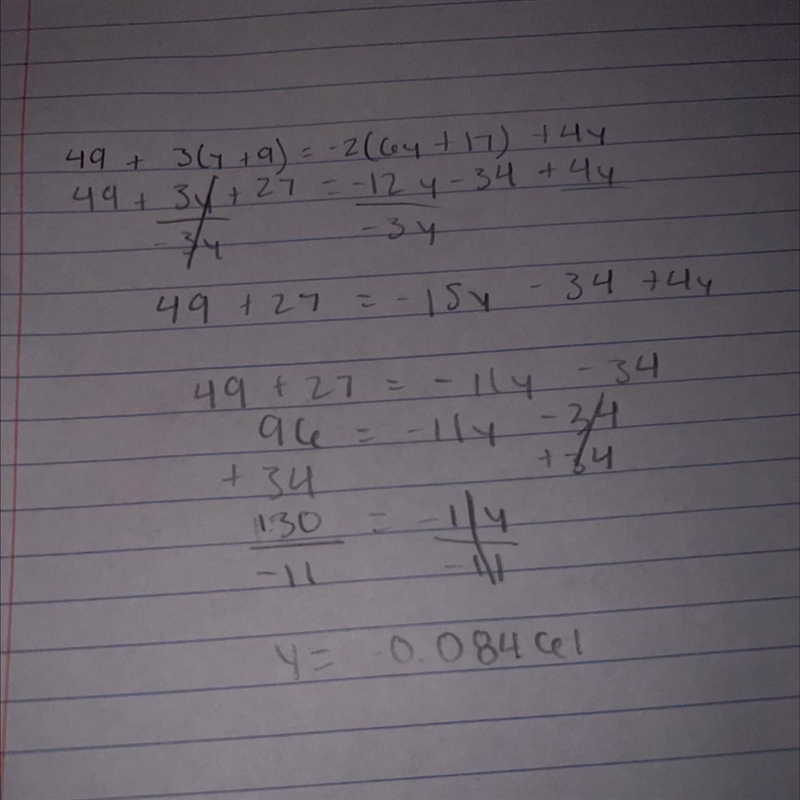 49 + 3(y + 9) = -2(6y + 17) + 4y
49 + 3y + 27 = -12y - 34 + 4y
-3y -3y
49 + 27 = -15y - 34 + 4y
49 + 27 = -11y - 34
96 = -11y - 34
+ 34 + 34
130 = -11y
-11 -11
y = -0.08461